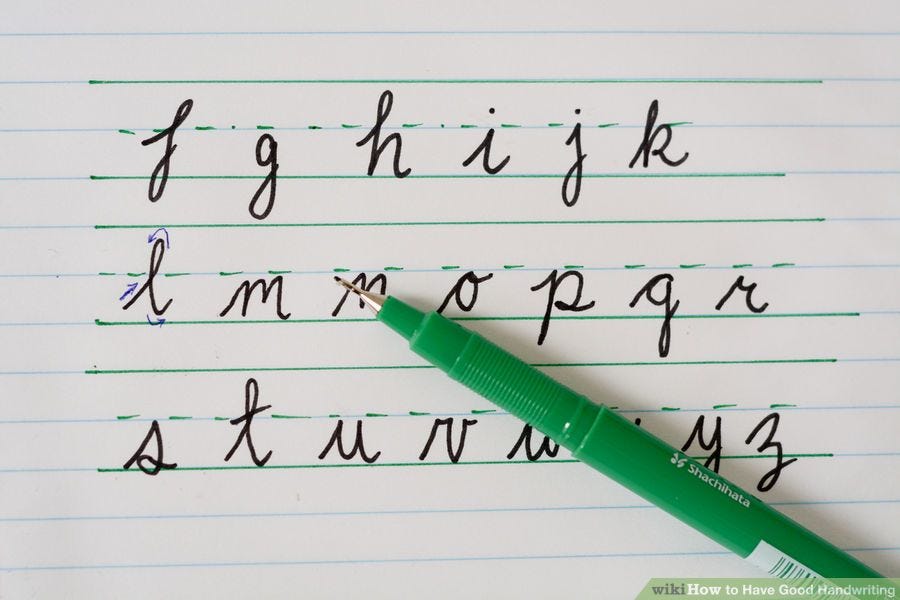 f g h i j k
l m n o p q r
s t u v w y z
Shachihata
wikiHow to Have Good Handwriting